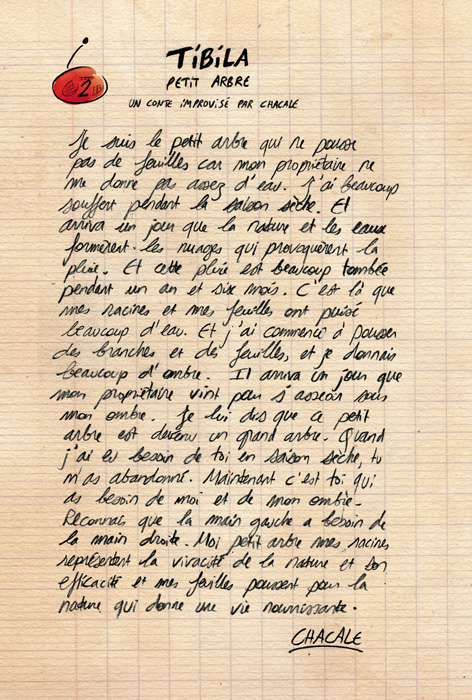 2
TiBiLA
PETIT ARBRE
UN CONTE IMPROVISÉ PAR CHACALE
Je suis le petit arbre qui ne pousse
pas de feuilles car mon propriétaire ne
me donne pas assez d'eau. J'ai beaucoup
souffert pendant la saison sèche. Et
arriva un jour que la nature et les eaux
formèrent les nuages qui provoquèrent la
pluie. Et cette pluie est beaucoup tombée
pendant un an et six mois. C'est là que
mes racines et mes feuilles ont puisé
beaucoup d'eau. Et j'ai commencé à pousser
des branches et des feuilles, et je donnais
beaucoup d'ombre. Il arriva un jour que
mon propriétaire vint pour s'asseoir sous
mon ombre. Je lui dis que ce petit
arbre est devenu un grand arbre. Quand
j'ai eu besoin de toi en saison sèche, tu
m'as abandonné. Maintenant c'est toi qui
as besoin de moi et de mon ombre.
Reconnais que la main gauche a besoin de
la main droite. Moi petit arbre mes racines
représentent la vivacité de la nature et son
efficacité et mes feuilles poussent pour la
nature qui donne une vie nourrissante.
CHACALE